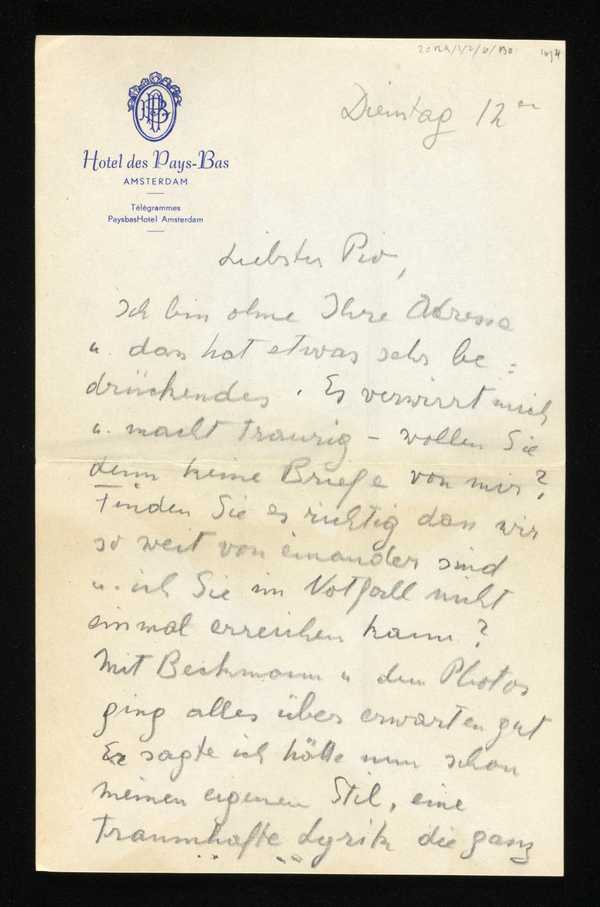 Hotel des Pays-Bas
AMSTERDAM
Télégrammes
PaysbasHotel Amsterdam
Dienstag 12
Liebster Piv,
Ich bin ohne Ihre Adresse
u. das hat etwas sehr be=
drückendes. Es verwirrt mich
u. macht traurig – wollen Sie
denn keine Briefe von mir?
Finden Sie es richtig dass wir
so weit von einander sind
u. ich Sie im Notfall nicht
einmal erreichen kann?
Mit Beckmann u den Photos
ging alles über erwarten gut
Er sagte ich hätte nun schon
meinen eigenen Stil, eine
traumhafte Lyrik die ganz